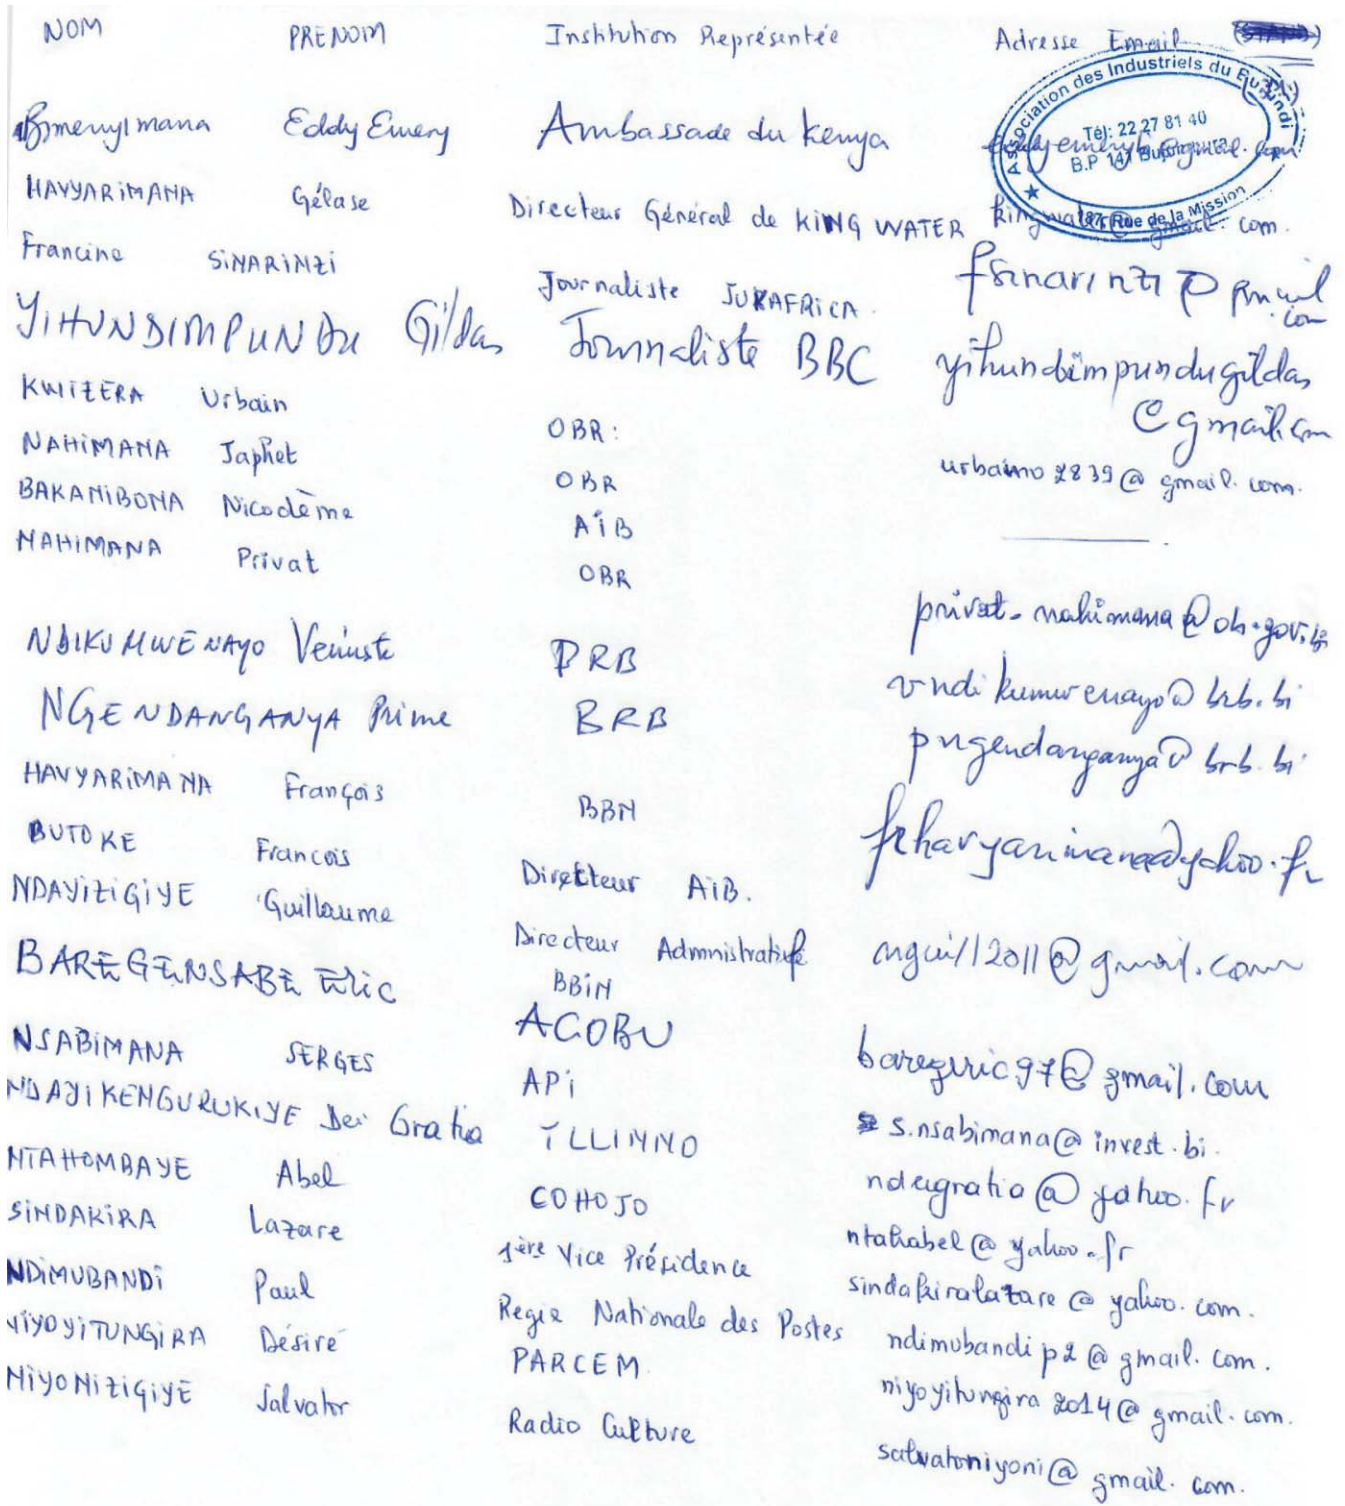 NOM PRENOM Institution Représentée Adresse Email
Association des Industriels du Burundi
Tél: 22 27 81 40
B.P 141 Bujumbura
187, Rue de la Mission
Bimenyimana Eddy Emery Ambassade du Kenya eddyemeryb@gmail.com
HAVYARIMANA Gélase Directeur Général de KING WATER kingwater@gmail.com.
Francine SINARINZI Journaliste JURAFRICA. fsinarinzi@gmail.com
YIHUNDIMPUNDU Gildas Journaliste BBC yihundimpundugildas
@gmail.com
KWIZERA Urbain OBR: urbaino2839@gmail.com.
NAHIMANA Japhet OBR
BAKANIBONA Nicodème AiB
NAHIMANA Privat OBR privat.nahimana@obr.gov.bi
NDIKUMWENAYO Venuste BRB vndikumwenayo@brb.bi
NGENDANGANYA Prime BRB pngendanganya@brb.bi
HAVYARIMANA François BBN frhavyarimana@yahoo.fr
BUTOKE Francois Directeur AiB.
NDAYIZIGIYE Guillaume Directeur Admnistratif nguill2011@gmail.com
BBiN
BAREGENSABE Eric ACOBU baregeric97@gmail.com
NSABIMANA SERGES APi s.nsabimana@invest.bi.
NDAYIKENGURUKIYE Dei Gratia ndeigratia@yahoo.fr
NTAHOMBAYE Abel COHOJO ntahabel@yahoo.fr
SINDAKIRA Lazare 1ère Vice Présidence sindakiralazare@yahoo.com.
NDIMUBANDI Paul Regie Nationale des Postes ndimubandip2@gmail.com.
NIYOYITUNGIRA Désiré PARCEM niyoyitungira2014@gmail.com.
NIYONIZIGIYE Salvator Radio Culture salvatoniyoni@gmail.com.